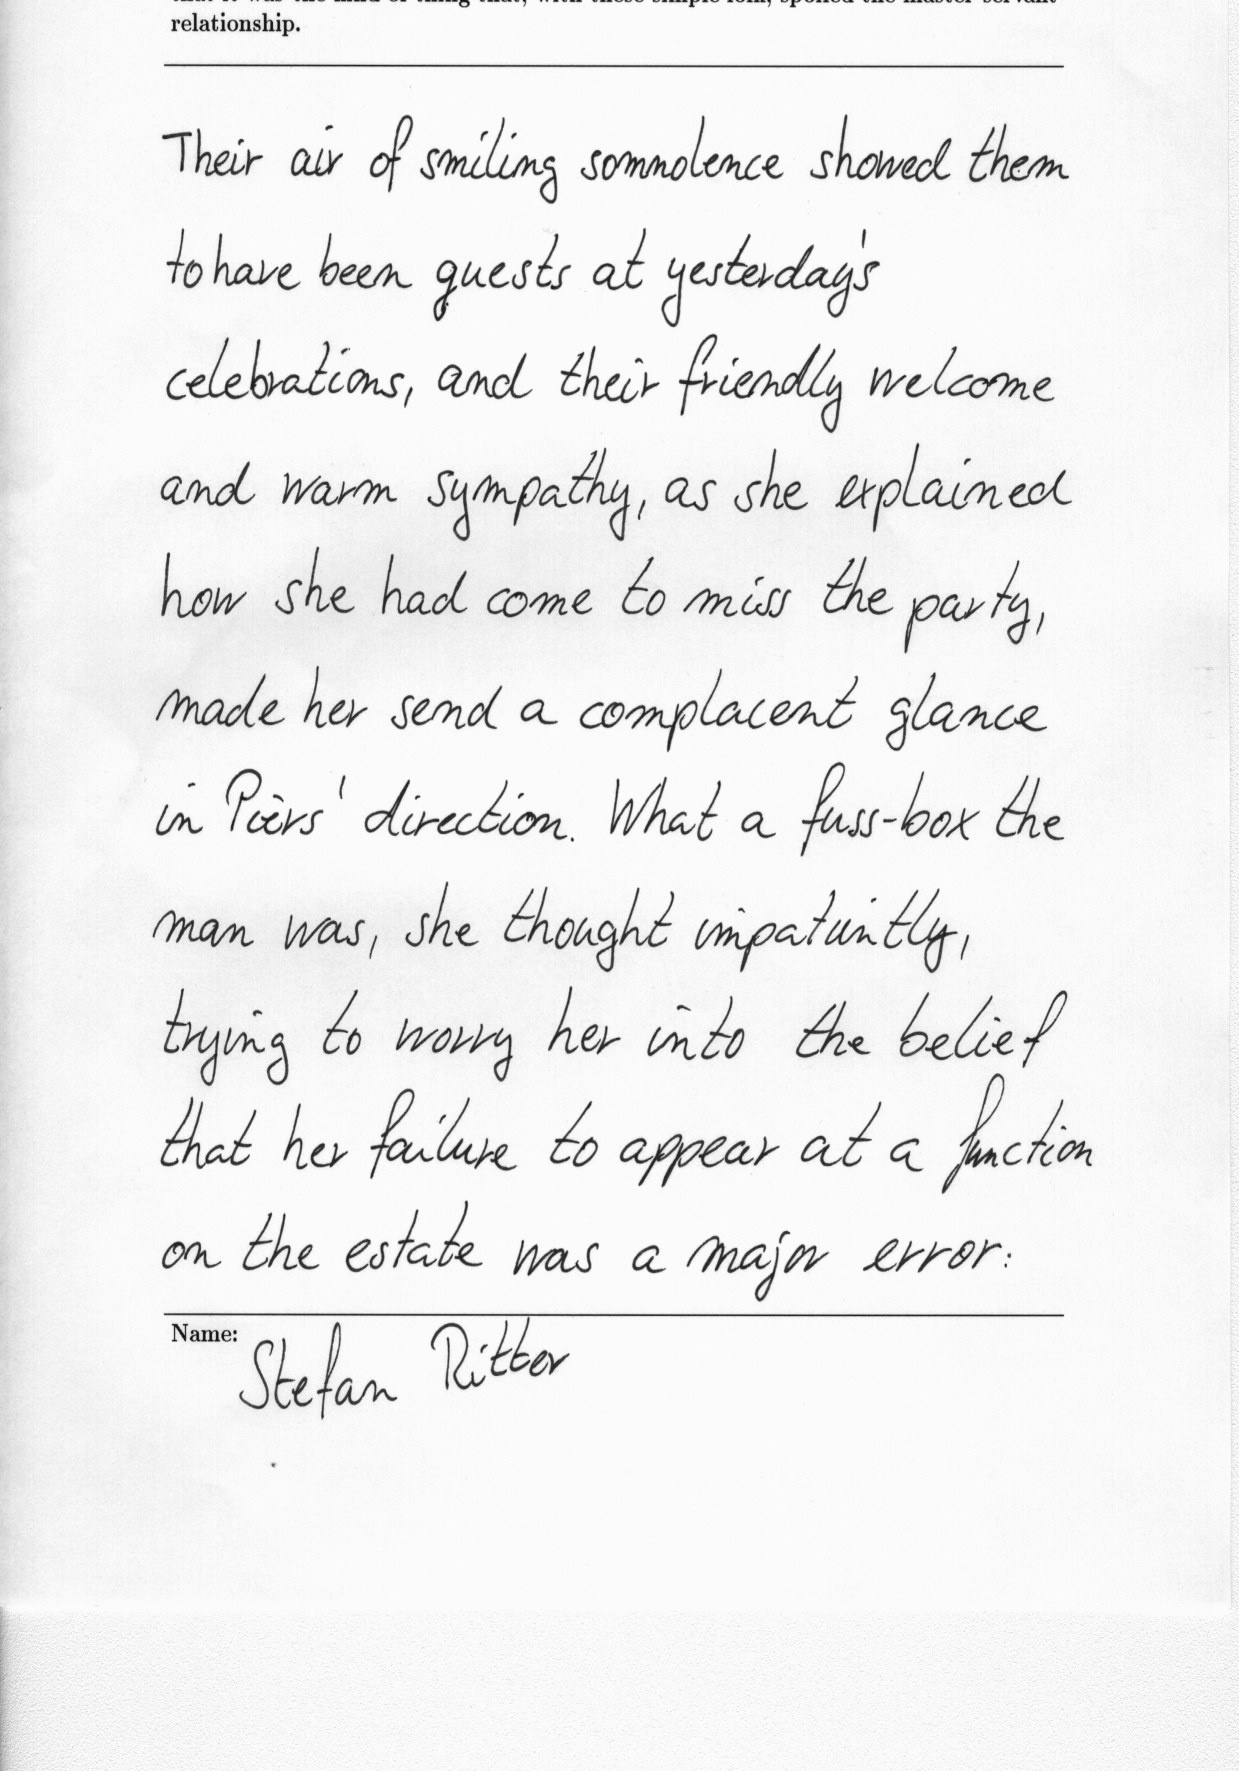 that it was the kind of thing that, with these simple folk, spoiled the master-servant
relationship.
Their air of smiling somnolence showed them
to have been guests at yesterday's
celebrations, and their friendly welcome
and warm sympathy, as she explained
how she had come to miss the party,
made her send a complacent glance
in Piers' direction. What a fuss-box the
man was, she thought impatiently,
trying to worry her into the belief
that her failure to appear at a function
on the estate was a major error:
Name:
Stefan Ritter